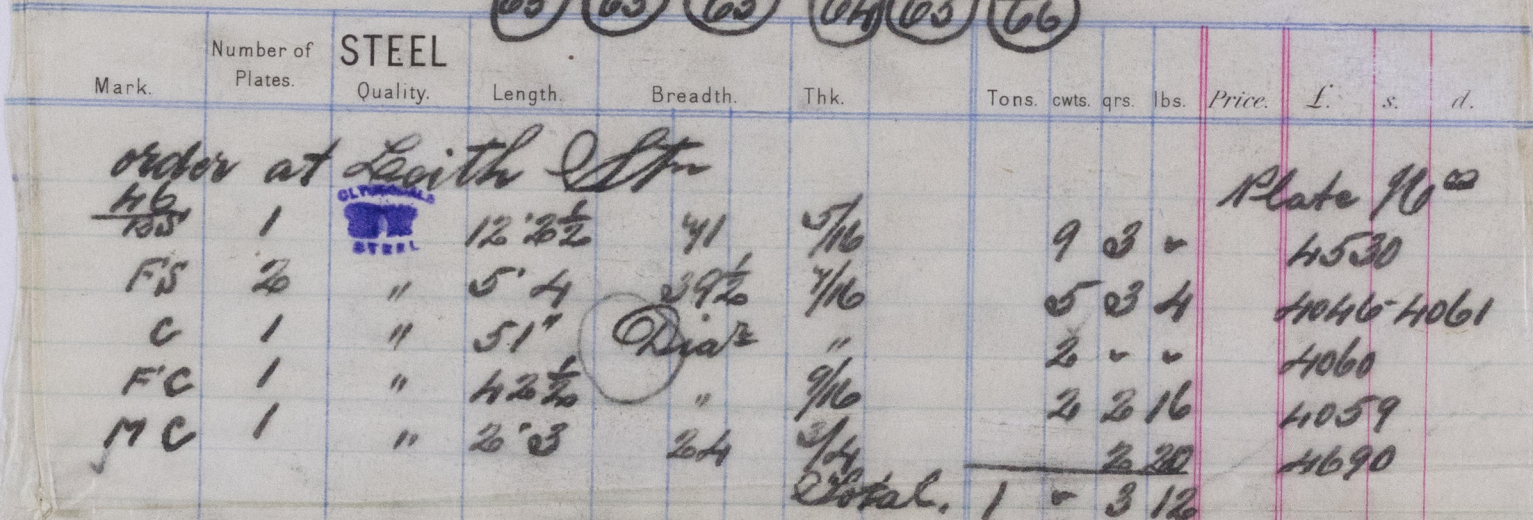 63 63 63 64 65 66
Mark. Number of Plates. STEEL Quality. Length. Breadth. Thk. Tons. cwts. qrs. lbs. Price. £. s. d.
order at Leith Stn
Plate Nos
46
BS 1 CLYDESDALE STEEL 12'2½ 41 5/16 9 3 - 4530
FS 2 " 5'4 39½ 7/16 5 3 4 4046-4061
C 1 " 51" Diar " 2 - - 4060
FC 1 " 42½ " 9/16 2 2 16 4059
MC 1 " 2'3 24 3/4 2 20 4690
Total. 1 - 3 12